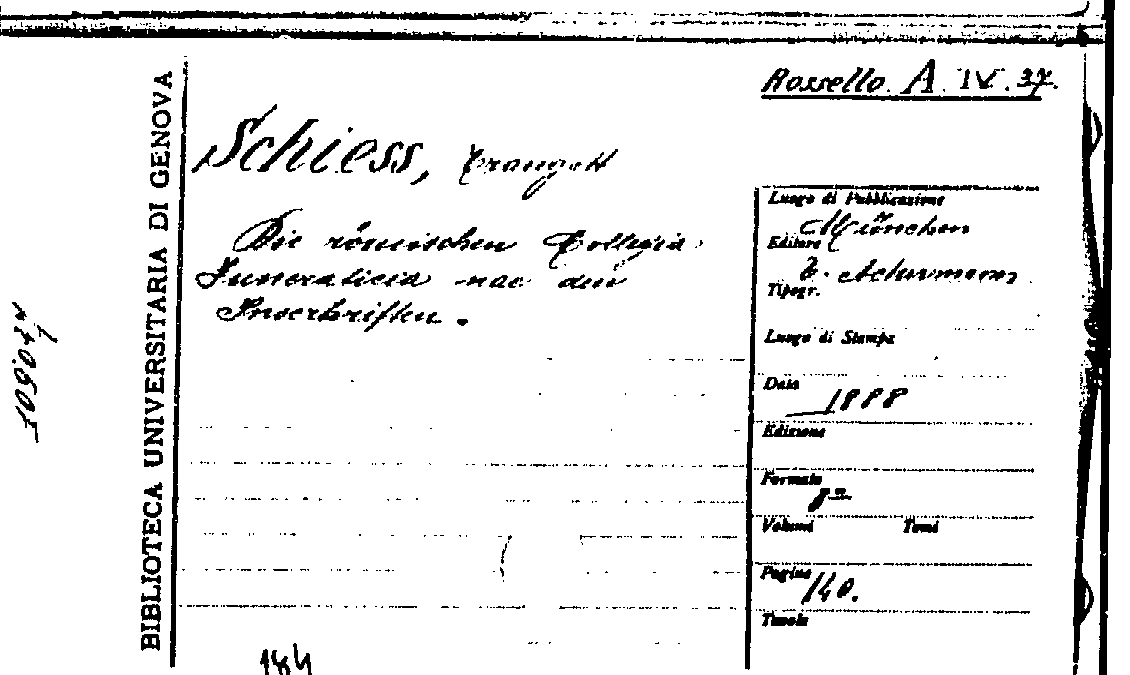 Rossello. A. IV. 37.
BIBLIOTECA UNIVERSITARIA DI GENOVA
Schiess, Traugott
Die römischen Collegia
Funeraticia nac den
Inschriften.
Luogo di Pubblicazione
München
Editore
T. Ackermann
Tipogr.
Luogo di Stampa
Data
1888
Edizione
Formato
8º
Volumi Tomi
Pagine
140.
Tavole